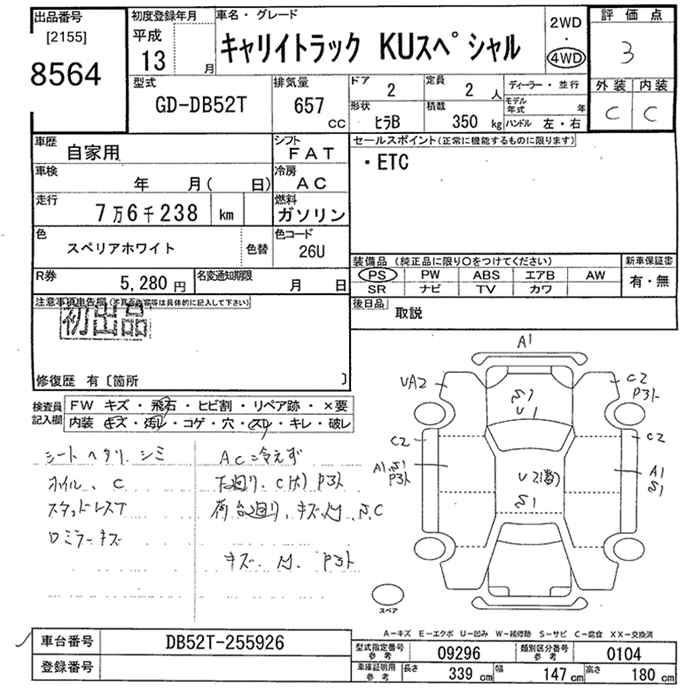 出品番号
[2155]
8564
初度登録年月
平成
13 月
車名・グレード
キャリイトラック KUスペシャル
2WD
・
4WD
評価点
3
外装 内装
C C
型式
GD-DB52T
排気量
657
CC
ドア
2
定員
2 人
形状
ヒラB
積載
350 kg
ディーラー・並行
モデル年式 年
ハンドル 左・右
車歴
自家用
シフト
FAT
車検
年 月( 日)
冷房
AC
走行
7万6千238 km
燃料
ガソリン
色
スペリアホワイト
色替
色コード
26U
R券
5,280円
名変通知期限
月 日
セールスポイント(正常に機能するものに限ります)
・ETC
装備品(純正品に限り○をつけてください)
PS PW ABS エアB AW
SR ナビ TV カワ
新車保証書
有・無
後日品
取説
注意事項申告欄(不具合箇所等は具体的に記入して下さい)
初出品
修復歴 有〔箇所 〕
検査員
記入欄
FW キズ・飛石・ヒビ割・リペア跡・×要
内装 キズ・汚レ・コゲ・穴・スレ・キレ・破レ
シートヘタリ、シミ
ホイル、C
スタッドレス7
ロミラーキズ
AC冷えず
下廻り、C(大)P3ト
荷台廻り、キズ、凹、S、C
キズ、凹、P3ト
A1
UA2
C2
P3ト
S1
U1
C2
C2
A1,S1
P3ト
U2(蓄)
S1
A1
S1
スペア
A-キズ E-エクボ U-凹み W-補修跡 S-サビ C-腐食 XX-交換済
車台番号
DB52T-255926
登録番号
型式指定番号
参考
09296
類別区分番号
参考
0104
車庫証明用
参考
長さ
339 cm
幅
147 cm
高さ
180 cm